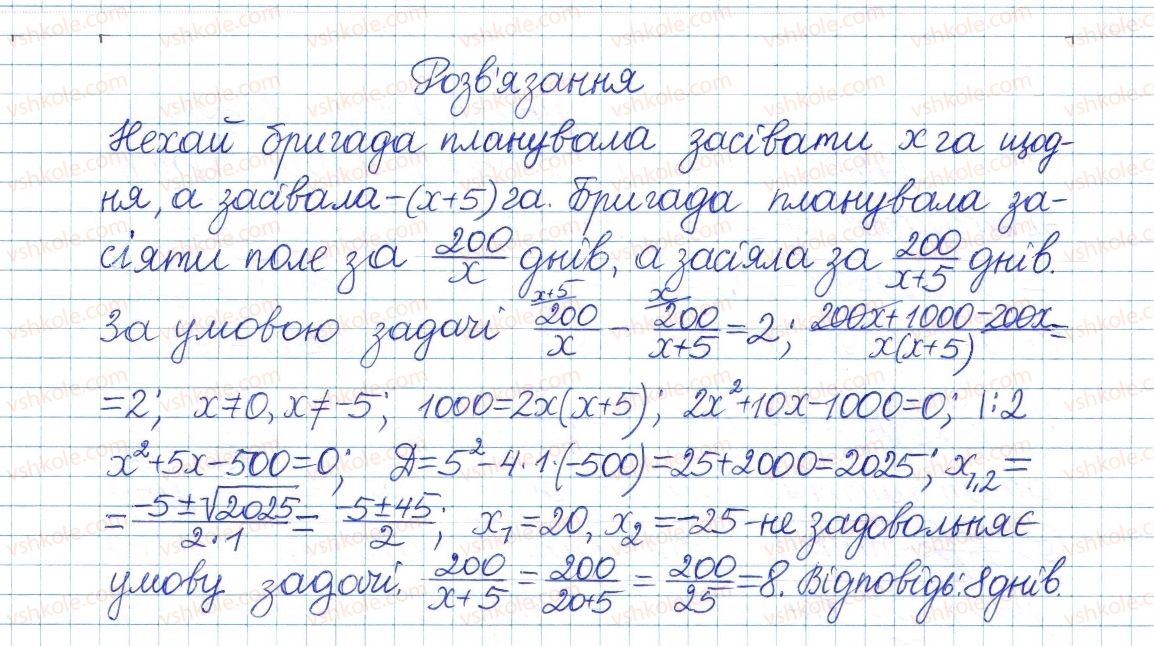 Розв'язання
Нехай бригада планувала засівати x га щод-
ня, а засівала – (x+5) га. Бригада планувала за-
сіяти поле за 200/x днів, а засіяла за 200/(x+5) днів.
За умовою задачі (x+5) 200/x − (x) 200/(x+5) = 2; (200x+1000−200x)/(x(x+5)) =
= 2; x≠0, x≠−5; 1000=2x(x+5); 2x²+10x−1000=0; |:2
x²+5x−500=0; Д=5²−4·1·(−500)=25+2000=2025; x₁,₂ =
= (−5±√2025)/(2·1) = (−5±45)/2; x₁=20, x₂=−25 – не задовольняє
умову задачі. 200/(x+5) = 200/(20+5) = 200/25 = 8. Відповідь: 8 днів.
vshkole.com